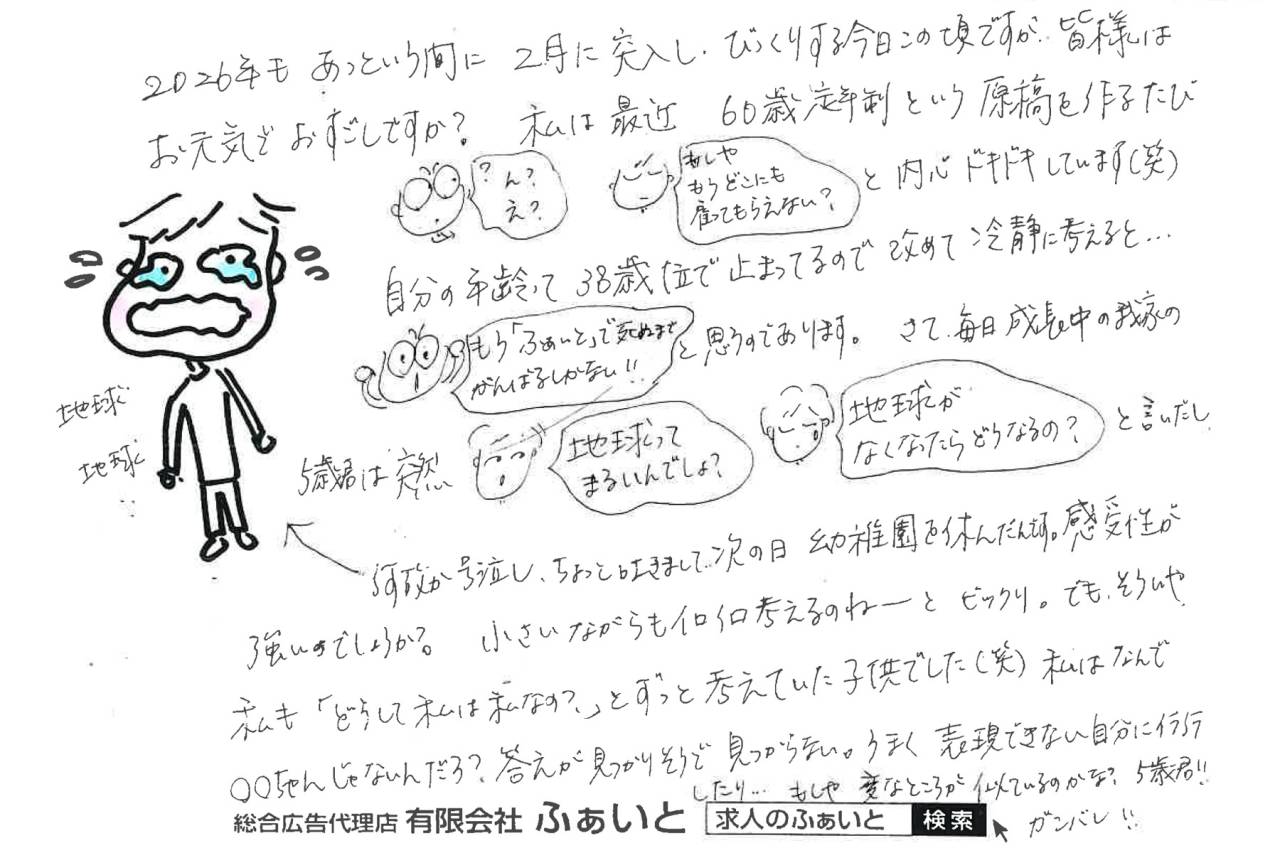 2026年も あっという間に 2月に突入し、びっくりする今日この頃ですが、皆様は
お元気で おすごしですか? 私は最近 60歳定年制という原稿を作るたび
? ん?
え?
もしや
もうどこにも
雇ってもらえない?
と 内心 ドキドキしています(笑)
自分の年齢って 38歳位で 止まってるので 改めて冷静に考えると…
もう「ふぁいと」で死ぬまで
がんばるしかない!!
と思うのであります。 さて、毎日成長中の我家の
5歳君は突然
地球って
まるいんでしょ?
地球が
なくなたらどうなるの?
と言いだし
地球
地球
何故か号泣し、ちょっと吐きまして、次の日 幼稚園を休んだんです。感受性が
強いのでしょうか? 小さいながらもイロイロ考えるのねーと ビックリ。でも、そういや
私も「どうして私は私なの?」とずっと考えていた子供でした(笑) 私はなんで
〇〇ちゃんじゃないんだろ?答えが見つかりそうで 見つからない。うまく表現できない自分にイライラ
したり… もしや 変なところが 似ているのかな? 5歳君!!
ガンバレ!!
総合広告代理店 有限会社 ふぁいと 求人のふぁいと 検索